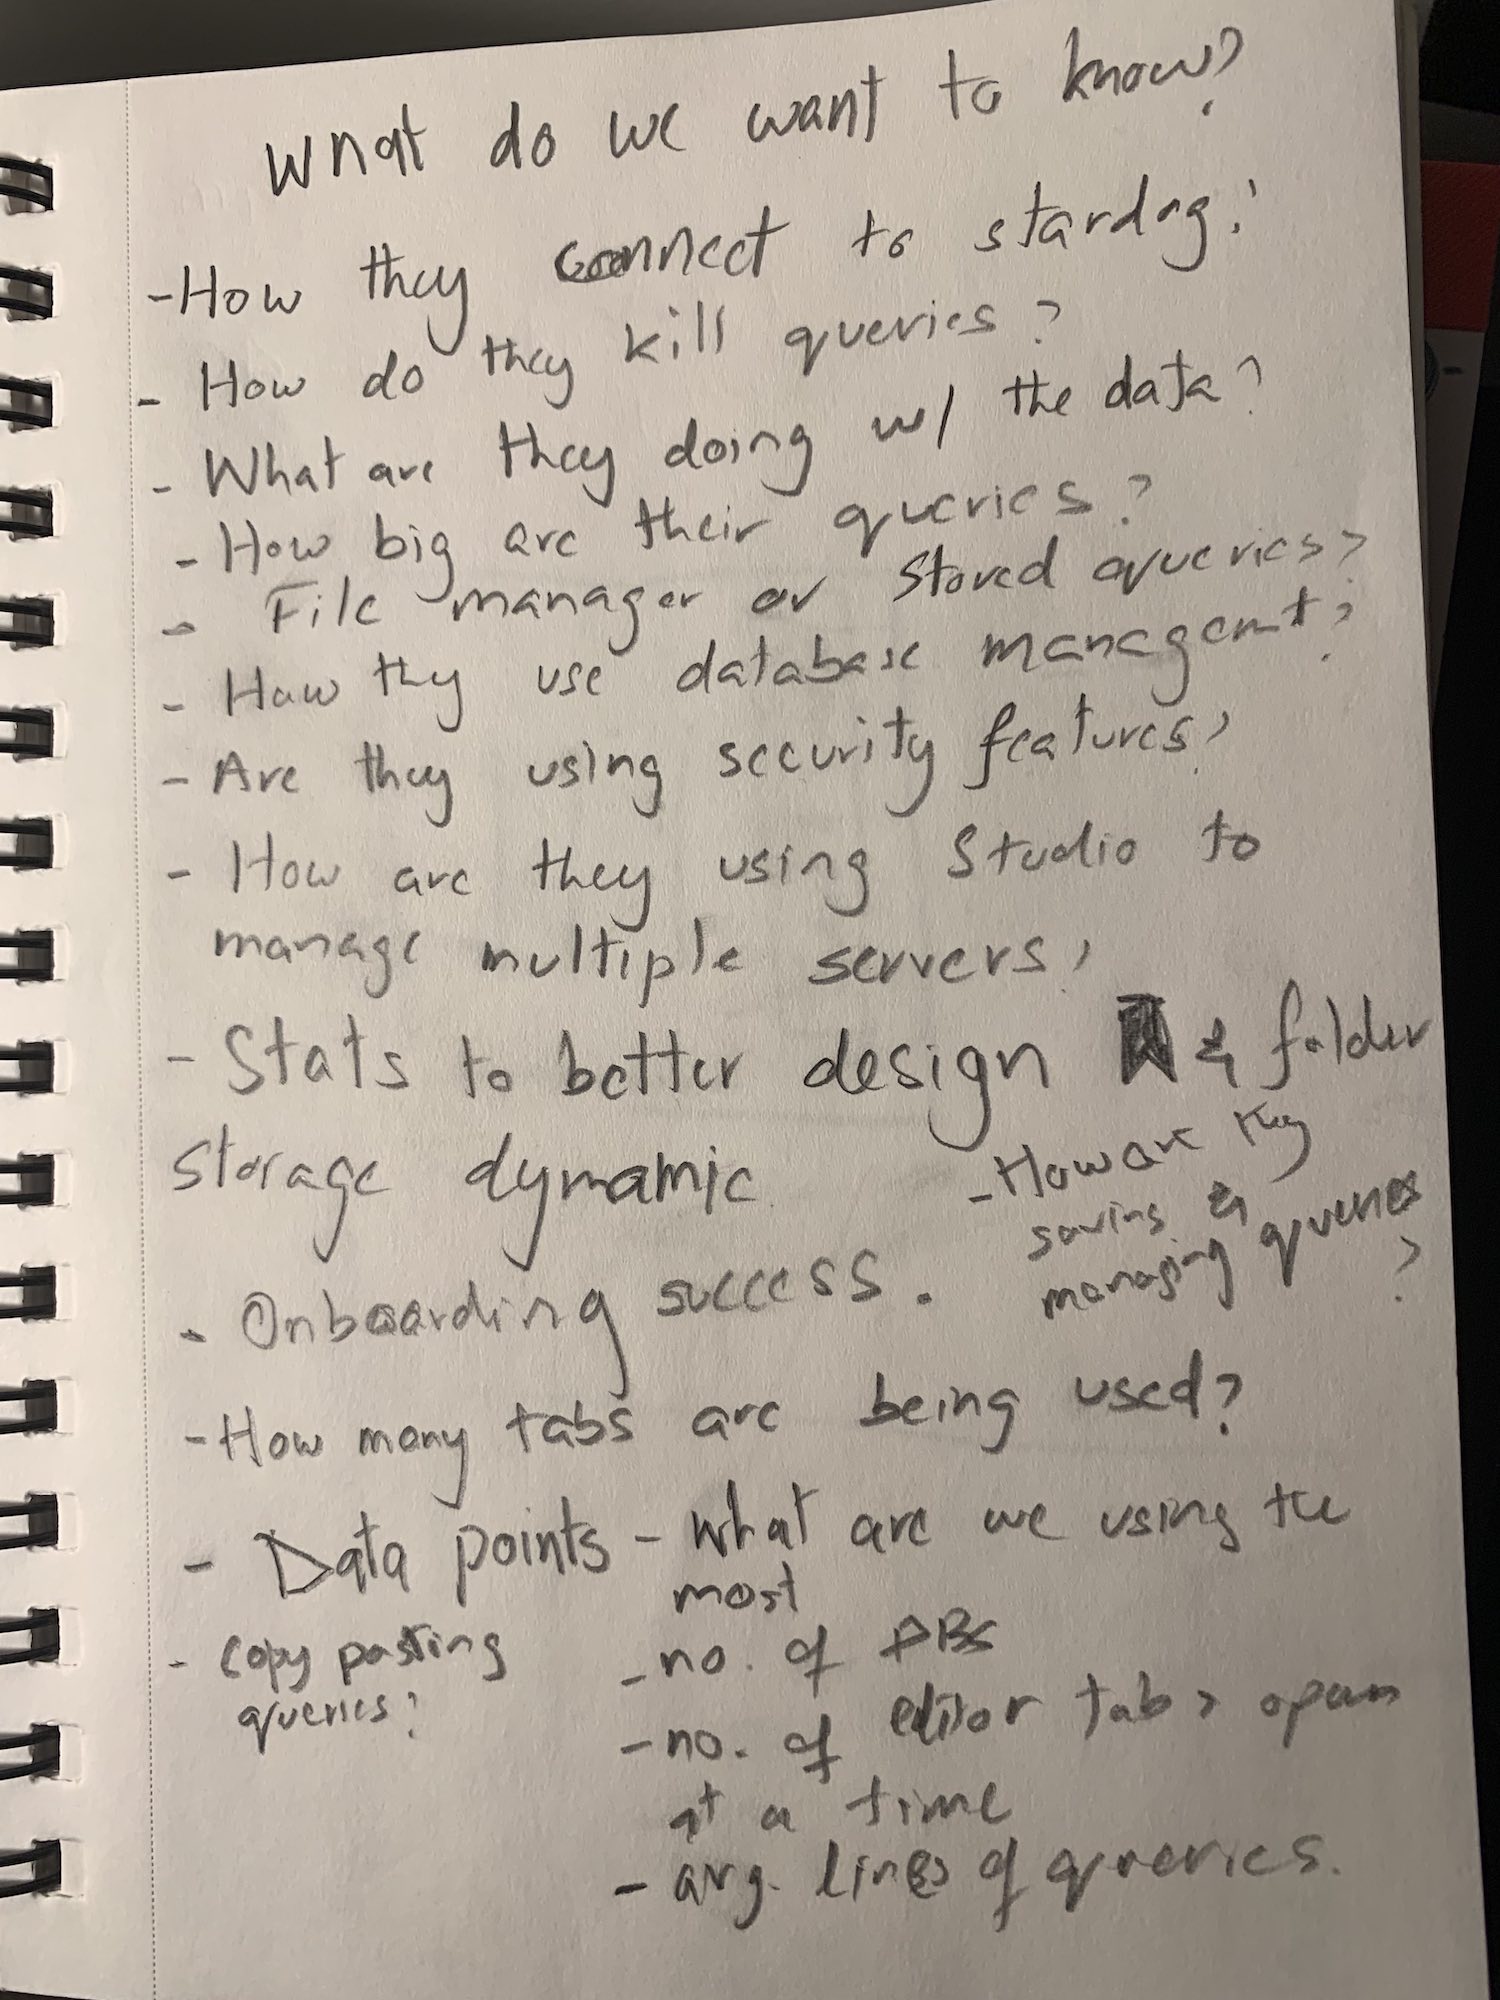 What do we want to know?
- How they connect to stardog?
- How do they kill queries?
- What are they doing w/ the data?
- How big are their queries?
- File manager or stored queries?
- How thy use database managemt?
- Are they using security features?
- How are they using Studio to
manage multiple servers?
- Stats to better design & folder
storage dynamic
- How are they
saving &
managing queries
?
- Onboarding success.
- How many tabs are being used?
- Data points - What are we using the
most
- Copy pasting
queries?
- no. of DBs
- no. of editor tabs open
at a time
- avg. lines of queries.